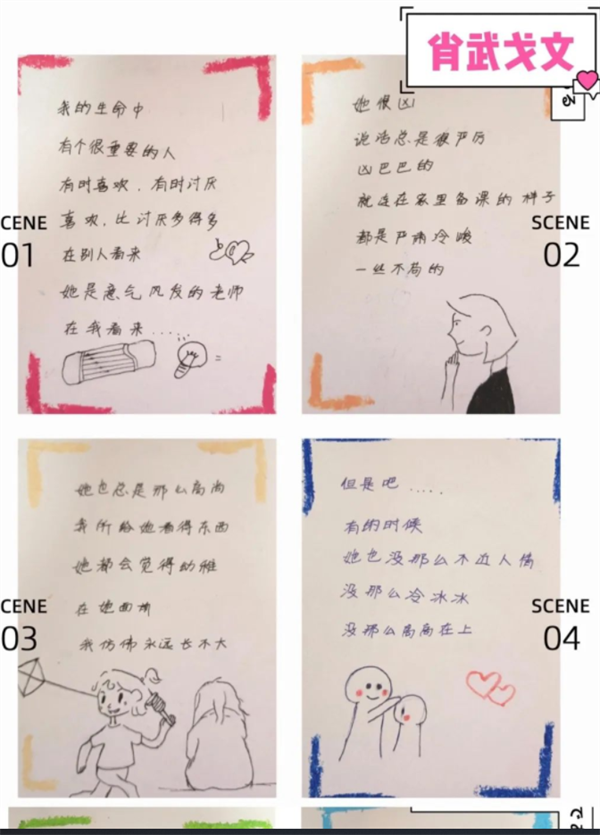 肖武戈文
CENE
01
我的生命中
有个很重要的人
有时喜欢，有时讨厌
喜欢，比讨厌多得多
在别人看来
她是意气风发的老师
在我看来......
SCENE
02
她很凶
说话总是很严厉
凶巴巴的
就连在家里备课的样子
都是严肃冷峻
一丝不苟的
CENE
03
她也总是那么高尚
我所给她看得东西
她都会觉得幼雅
在她面前
我仿佛永远长不大
SCENE
04
但是吧.....
有的时候
她也没那么不近人情
没那么冷冰冰
没那么高高在上